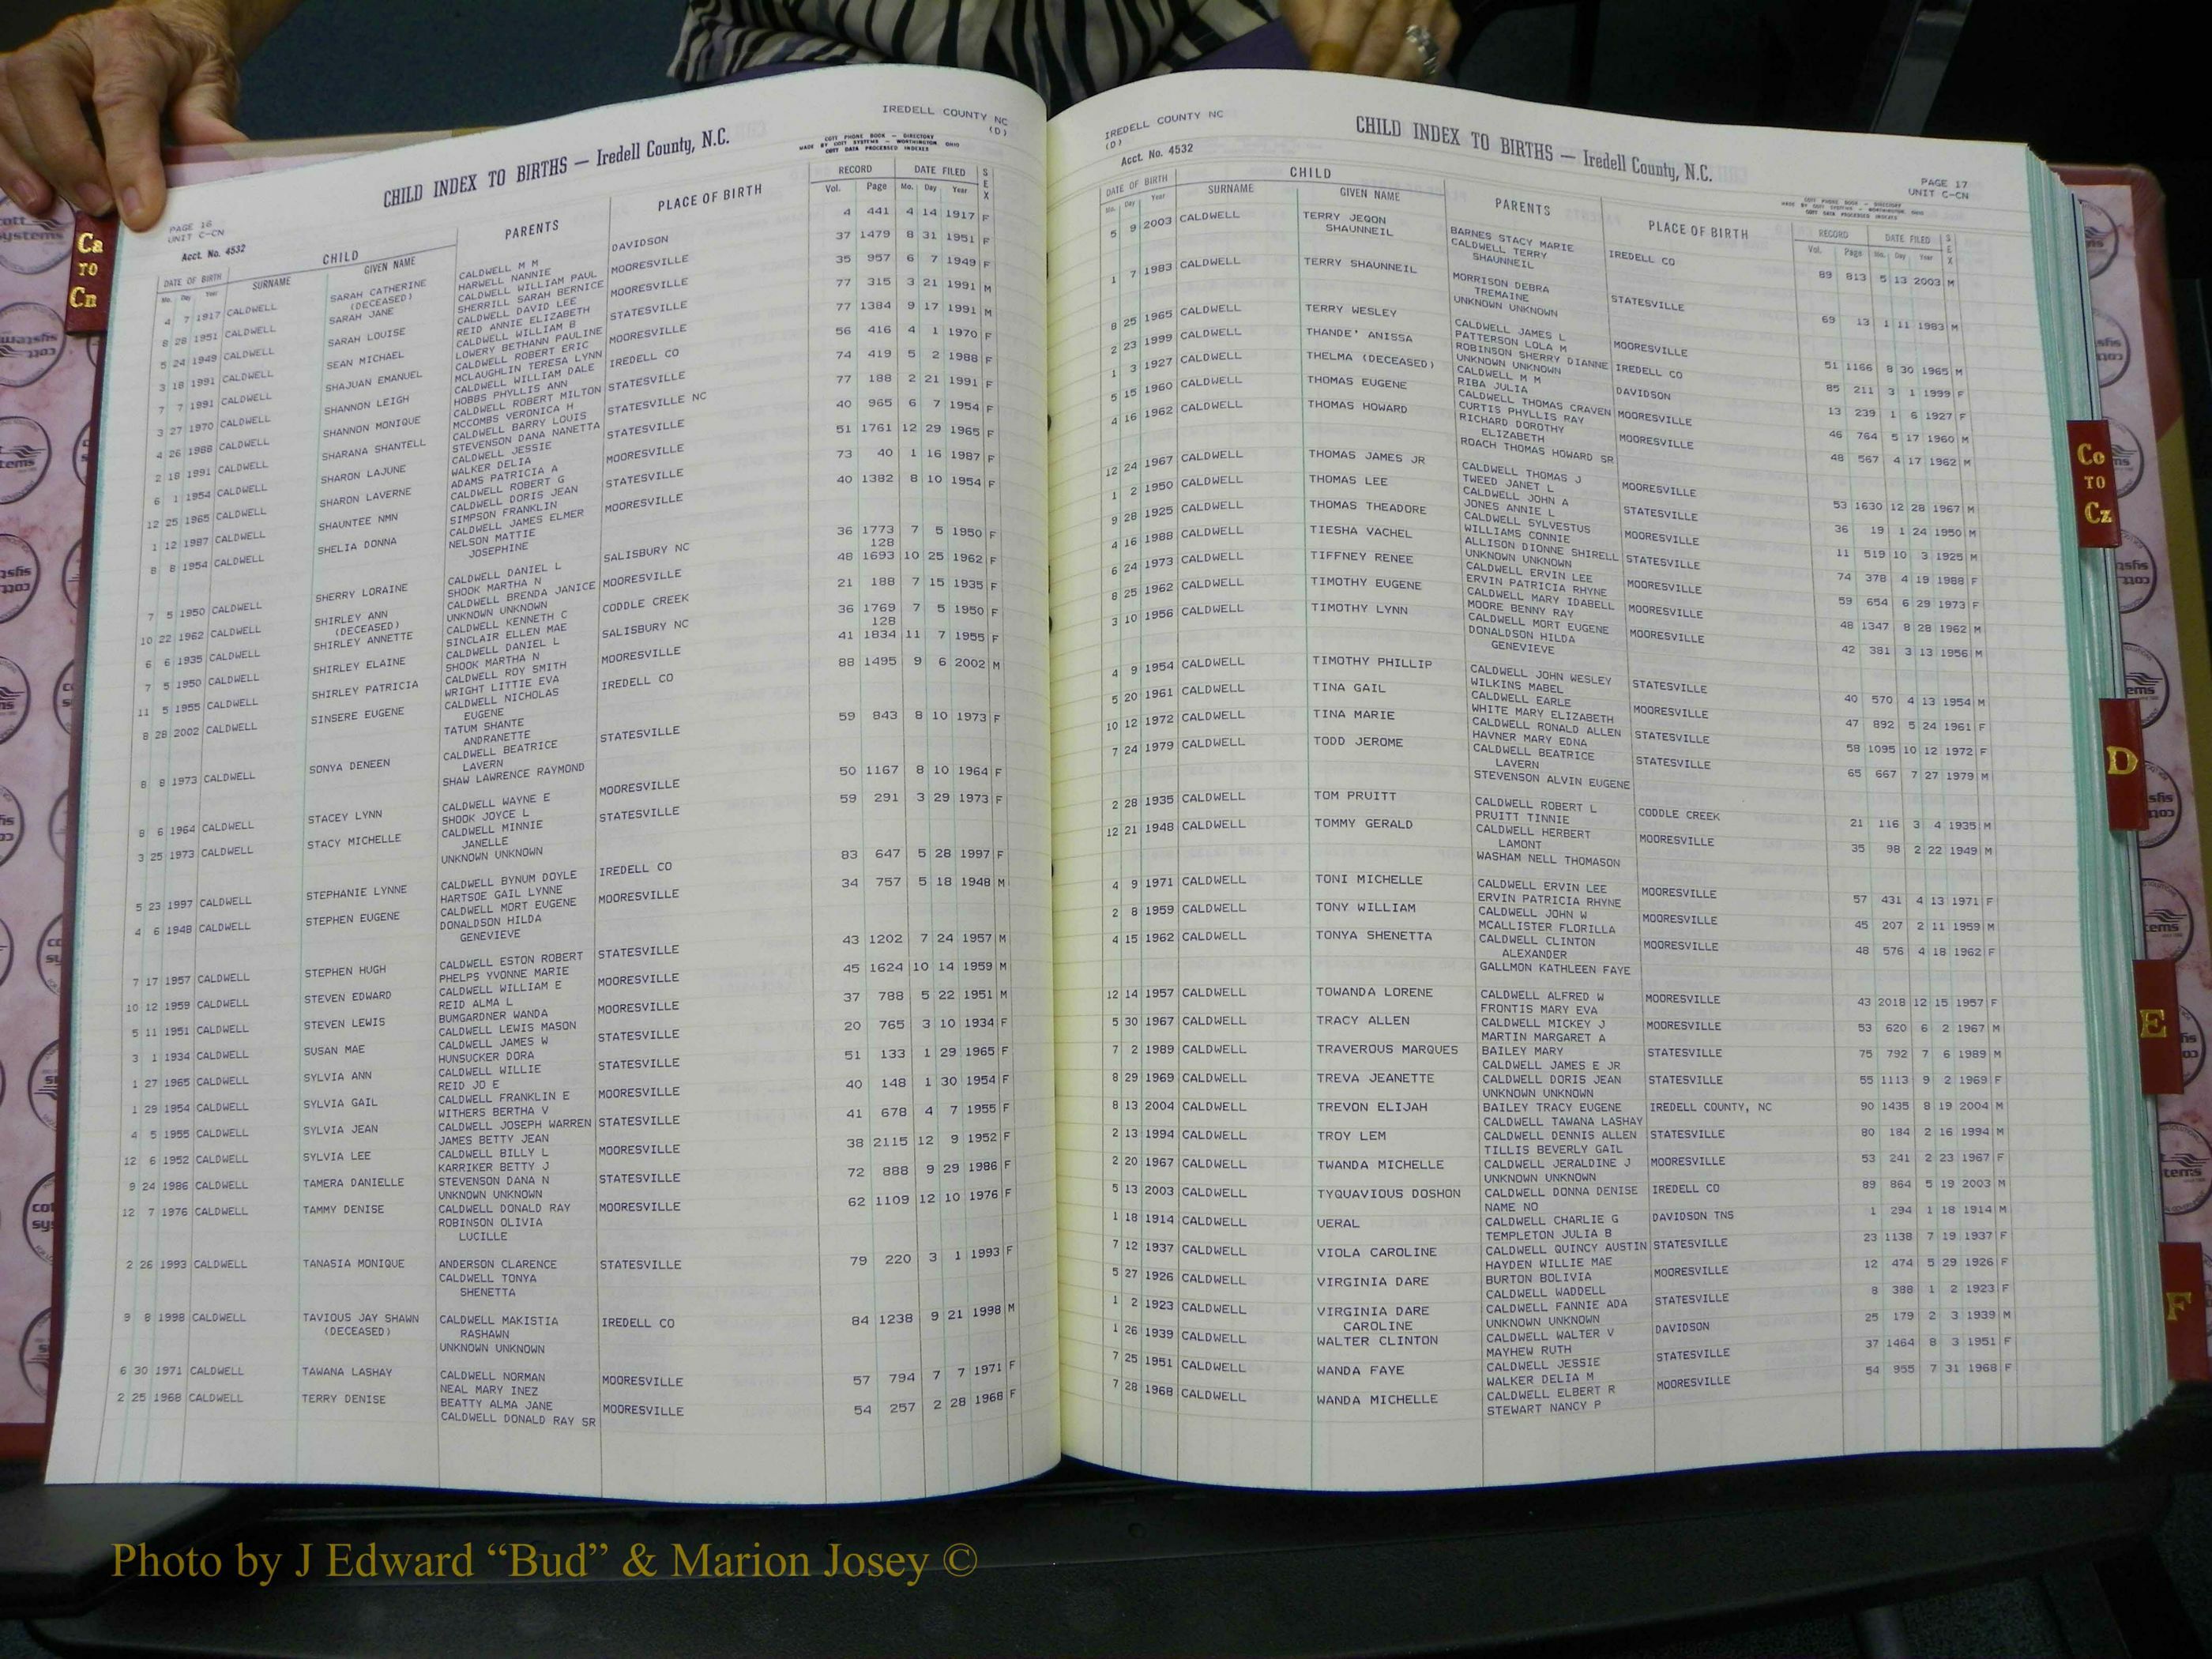 IREDELL COUNTY NC
(D)
CHILD INDEX TO BIRTHS — Iredell County, N.C.
COTT PHONE BOOK — DIRECTORY
MADE BY COTT SYSTEMS — WORTHINGTON, OHIO
COTT DATA PROCESSED INDEXES
PAGE 16
UNIT C-CN
Acct. No. 4532
DATE OF BIRTH CHILD PARENTS PLACE OF BIRTH RECORD DATE FILED SEX
Mo. Day Year SURNAME GIVEN NAME Vol. Page Mo. Day Year
4 7 1917 CALDWELL SARAH CATHERINE CALDWELL M M DAVIDSON 4 441 4 14 1917 F
(DECEASED) HARWELL NANNIE
8 28 1951 CALDWELL SARAH JANE CALDWELL WILLIAM PAUL MOORESVILLE 37 1479 8 31 1951 F
SHERRILL SARAH BERNICE
5 24 1949 CALDWELL SARAH LOUISE CALDWELL DAVID LEE MOORESVILLE 35 957 6 7 1949 F
REID ANNIE ELIZABETH
3 18 1991 CALDWELL SEAN MICHAEL CALDWELL WILLIAM B STATESVILLE 77 315 3 21 1991 M
LOWERY BETHANN PAULINE
7 7 1991 CALDWELL SHAJUAN EMANUEL CALDWELL ROBERT ERIC MOORESVILLE 77 1384 9 17 1991 M
MCLAUGHLIN TERESA LYNN
3 27 1970 CALDWELL SHANNON LEIGH CALDWELL WILLIAM DALE IREDELL CO 56 416 4 1 1970 F
HOBBS PHYLLIS ANN
4 26 1988 CALDWELL SHANNON MONIQUE CALDWELL ROBERT MILTON STATESVILLE 74 419 5 2 1988 F
MCCOMBS VERONICA H
2 18 1991 CALDWELL SHARANA SHANTELL CALDWELL BARRY LOUIS STATESVILLE NC 77 188 2 21 1991 F
STEVENSON DANA NANETTA
6 1 1954 CALDWELL SHARON LAJUNE CALDWELL JESSIE STATESVILLE 40 965 6 7 1954 F
WALKER DELIA
12 25 1965 CALDWELL SHARON LAVERNE ADAMS PATRICIA A MOORESVILLE 51 1761 12 29 1965 F
CALDWELL ROBERT G
1 12 1987 CALDWELL SHAUNTEE NMN CALDWELL DORIS JEAN STATESVILLE 73 40 1 16 1987 F
SIMPSON FRANKLIN
8 8 1954 CALDWELL SHELIA DONNA CALDWELL JAMES ELMER MOORESVILLE 40 1382 8 10 1954 F
NELSON MATTIE
JOSEPHINE
7 5 1950 CALDWELL SHERRY LORAINE CALDWELL DANIEL L SALISBURY NC 36 1773 7 5 1950 F
SHOOK MARTHA N 128
10 22 1962 CALDWELL SHIRLEY ANN CALDWELL BRENDA JANICE MOORESVILLE 48 1693 10 25 1962 F
(DECEASED) UNKNOWN UNKNOWN
6 6 1935 CALDWELL SHIRLEY ANNETTE CALDWELL KENNETH C CODDLE CREEK 21 188 7 15 1935 F
SINCLAIR ELLEN MAE
7 5 1950 CALDWELL SHIRLEY ELAINE CALDWELL DANIEL L SALISBURY NC 36 1769 7 5 1950 F
SHOOK MARTHA N 128
11 5 1955 CALDWELL SHIRLEY PATRICIA CALDWELL ROY SMITH MOORESVILLE 41 1834 11 7 1955 F
WRIGHT LITTIE EVA
8 28 2002 CALDWELL SINSERE EUGENE CALDWELL NICHOLAS IREDELL CO 88 1495 9 6 2002 M
EUGENE
TATUM SHANTE
ANDRANETTE
8 8 1973 CALDWELL SONYA DENEEN CALDWELL BEATRICE STATESVILLE 59 843 8 10 1973 F
LAVERN
SHAW LAWRENCE RAYMOND
8 6 1964 CALDWELL STACEY LYNN CALDWELL WAYNE E MOORESVILLE 50 1167 8 10 1964 F
SHOOK JOYCE L
3 25 1973 CALDWELL STACY MICHELLE CALDWELL MINNIE STATESVILLE 59 291 3 29 1973 F
JANELLE
UNKNOWN UNKNOWN
5 23 1997 CALDWELL STEPHANIE LYNNE CALDWELL BYNUM DOYLE IREDELL CO 83 647 5 28 1997 F
HARTSOE GAIL LYNNE
4 6 1948 CALDWELL STEPHEN EUGENE CALDWELL MORT EUGENE MOORESVILLE 34 757 5 18 1948 M
DONALDSON HILDA
GENEVIEVE
7 17 1957 CALDWELL STEPHEN HUGH CALDWELL ESTON ROBERT STATESVILLE 43 1202 7 24 1957 M
PHELPS YVONNE MARIE
10 12 1959 CALDWELL STEVEN EDWARD CALDWELL WILLIAM E MOORESVILLE 45 1624 10 14 1959 M
REID ALMA L
5 11 1951 CALDWELL STEVEN LEWIS BUMGARDNER WANDA MOORESVILLE 37 788 5 22 1951 M
CALDWELL LEWIS MASON
3 1 1934 CALDWELL SUSAN MAE CALDWELL JAMES W STATESVILLE 20 765 3 10 1934 F
HUNSUCKER DORA
1 27 1965 CALDWELL SYLVIA ANN CALDWELL WILLIE STATESVILLE 51 133 1 29 1965 F
REID JO E
1 29 1954 CALDWELL SYLVIA GAIL CALDWELL FRANKLIN E MOORESVILLE 40 148 1 30 1954 F
WITHERS BERTHA V
4 5 1955 CALDWELL SYLVIA JEAN CALDWELL JOSEPH WARREN STATESVILLE 41 678 4 7 1955 F
JAMES BETTY JEAN
12 6 1952 CALDWELL SYLVIA LEE CALDWELL BILLY L MOORESVILLE 38 2115 12 9 1952 F
KARRIKER BETTY J
9 24 1986 CALDWELL TAMERA DANIELLE STEVENSON DANA N STATESVILLE 72 888 9 29 1986 F
UNKNOWN UNKNOWN
12 7 1976 CALDWELL TAMMY DENISE CALDWELL DONALD RAY MOORESVILLE 62 1109 12 10 1976 F
ROBINSON OLIVIA
LUCILLE
2 26 1993 CALDWELL TANASIA MONIQUE ANDERSON CLARENCE STATESVILLE 79 220 3 1 1993 F
CALDWELL TONYA
SHENETTA
9 8 1998 CALDWELL TAVIOUS JAY SHAWN CALDWELL MAKISTIA IREDELL CO 84 1238 9 21 1998 M
(DECEASED) RASHAWN
UNKNOWN UNKNOWN
6 30 1971 CALDWELL TAWANA LASHAY CALDWELL NORMAN MOORESVILLE 57 794 7 7 1971 F
NEAL MARY INEZ
2 25 1968 CALDWELL TERRY DENISE BEATTY ALMA JANE MOORESVILLE 54 257 2 28 1968 F
CALDWELL DONALD RAY SR
IREDELL COUNTY NC
(D)
CHILD INDEX TO BIRTHS — Iredell County, N.C.
Acct. No. 4532
PAGE 17
UNIT C-CN
COTT PHONE BOOK — DIRECTORY
MADE BY COTT SYSTEMS — WORTHINGTON, OHIO
COTT DATA PROCESSED INDEXES
DATE OF BIRTH CHILD PARENTS PLACE OF BIRTH RECORD DATE FILED SEX
Mo. Day Year SURNAME GIVEN NAME Vol. Page Mo. Day Year
5 9 2003 CALDWELL TERRY JEQON BARNES STACY MARIE IREDELL CO 89 813 5 13 2003 M
SHAUNNEIL CALDWELL TERRY
SHAUNNEIL
1 7 1983 CALDWELL TERRY SHAUNNEIL MORRISON DEBRA STATESVILLE 69 13 1 11 1983 M
TREMAINE
UNKNOWN UNKNOWN
8 25 1965 CALDWELL TERRY WESLEY CALDWELL JAMES L MOORESVILLE 51 1166 8 30 1965 M
PATTERSON LOLA M
2 23 1999 CALDWELL THANDE' ANISSA ROBINSON SHERRY DIANNE IREDELL CO 85 211 3 1 1999 F
UNKNOWN UNKNOWN
1 3 1927 CALDWELL THELMA (DECEASED) CALDWELL M M DAVIDSON 13 239 1 6 1927 F
RIBA JULIA
5 15 1960 CALDWELL THOMAS EUGENE CALDWELL THOMAS CRAVEN MOORESVILLE 46 764 5 17 1960 M
CURTIS PHYLLIS RAY
4 16 1962 CALDWELL THOMAS HOWARD RICHARD DOROTHY MOORESVILLE 48 567 4 17 1962 M
ELIZABETH
ROACH THOMAS HOWARD SR
12 24 1967 CALDWELL THOMAS JAMES JR CALDWELL THOMAS J MOORESVILLE 53 1630 12 28 1967 M
TWEED JANET L
1 2 1950 CALDWELL THOMAS LEE CALDWELL JOHN A STATESVILLE 36 19 1 24 1950 M
JONES ANNIE L
9 28 1925 CALDWELL THOMAS THEADORE CALDWELL SYLVESTUS MOORESVILLE 11 519 10 3 1925 M
WILLIAMS CONNIE
4 16 1988 CALDWELL TIESHA VACHEL ALLISON DIONNE SHIRELL STATESVILLE 74 378 4 19 1988 F
UNKNOWN UNKNOWN
6 24 1973 CALDWELL TIFFNEY RENEE CALDWELL ERVIN LEE MOORESVILLE 59 654 6 29 1973 F
ERVIN PATRICIA RHYNE
8 25 1962 CALDWELL TIMOTHY EUGENE CALDWELL MARY IDABELL MOORESVILLE 48 1347 8 28 1962 M
MOORE BENNY RAY
3 10 1956 CALDWELL TIMOTHY LYNN CALDWELL MORT EUGENE MOORESVILLE 42 381 3 13 1956 M
DONALDSON HILDA
GENEVIEVE
4 9 1954 CALDWELL TIMOTHY PHILLIP CALDWELL JOHN WESLEY STATESVILLE 40 570 4 13 1954 M
WILKINS MABEL
5 20 1961 CALDWELL TINA GAIL CALDWELL EARLE MOORESVILLE 47 892 5 24 1961 F
WHITE MARY ELIZABETH
10 12 1972 CALDWELL TINA MARIE CALDWELL RONALD ALLEN STATESVILLE 58 1095 10 12 1972 F
HAVNER MARY EDNA
7 24 1979 CALDWELL TODD JEROME CALDWELL BEATRICE STATESVILLE 65 667 7 27 1979 M
LAVERN
STEVENSON ALVIN EUGENE
2 28 1935 CALDWELL TOM PRUITT CALDWELL ROBERT L CODDLE CREEK 21 116 3 4 1935 M
PRUITT TINNIE
12 21 1948 CALDWELL TOMMY GERALD CALDWELL HERBERT MOORESVILLE 35 98 2 22 1949 M
LAMONT
WASHAM NELL THOMASON
4 9 1971 CALDWELL TONI MICHELLE CALDWELL ERVIN LEE MOORESVILLE 57 431 4 13 1971 F
ERVIN PATRICIA RHYNE
2 8 1959 CALDWELL TONY WILLIAM CALDWELL JOHN W MOORESVILLE 45 207 2 11 1959 M
MCALLISTER FLORILLA
4 15 1962 CALDWELL TONYA SHENETTA CALDWELL CLINTON MOORESVILLE 48 576 4 18 1962 F
ALEXANDER
GALLMON KATHLEEN FAYE
12 14 1957 CALDWELL TOWANDA LORENE CALDWELL ALFRED W MOORESVILLE 43 2018 12 15 1957 F
FRONTIS MARY EVA
5 30 1967 CALDWELL TRACY ALLEN CALDWELL MICKEY J MOORESVILLE 53 620 6 2 1967 M
MARTIN MARGARET A
7 2 1989 CALDWELL TRAVEROUS MARQUES BAILEY MARY STATESVILLE 75 792 7 6 1989 M
CALDWELL JAMES E JR
8 29 1969 CALDWELL TREVA JEANETTE CALDWELL DORIS JEAN STATESVILLE 55 1113 9 2 1969 F
UNKNOWN UNKNOWN
8 13 2004 CALDWELL TREVON ELIJAH BAILEY TRACY EUGENE IREDELL COUNTY, NC 90 1435 8 19 2004 M
CALDWELL TAWANA LASHAY
2 13 1994 CALDWELL TROY LEM CALDWELL DENNIS ALLEN STATESVILLE 80 184 2 16 1994 M
TILLIS BEVERLY GAIL
2 20 1967 CALDWELL TWANDA MICHELLE CALDWELL JERALDINE J MOORESVILLE 53 241 2 23 1967 F
UNKNOWN UNKNOWN
5 13 2003 CALDWELL TYQUAVIOUS DOSHON CALDWELL DONNA DENISE IREDELL CO 89 864 5 19 2003 M
NAME NO
1 18 1914 CALDWELL VERAL CALDWELL CHARLIE G DAVIDSON TNS 1 294 1 18 1914 M
TEMPLETON JULIA B
7 12 1937 CALDWELL VIOLA CAROLINE CALDWELL QUINCY AUSTIN STATESVILLE 23 1138 7 19 1937 F
HAYDEN WILLIE MAE
5 27 1926 CALDWELL VIRGINIA DARE BURTON BOLIVIA MOORESVILLE 12 474 5 29 1926 F
CALDWELL WADDELL
1 2 1923 CALDWELL VIRGINIA DARE CALDWELL FANNIE ADA STATESVILLE 8 388 1 2 1923 F
CAROLINE UNKNOWN UNKNOWN
1 26 1939 CALDWELL WALTER CLINTON CALDWELL WALTER V DAVIDSON 25 179 2 3 1939 M
MAYHEW RUTH
7 25 1951 CALDWELL WANDA FAYE CALDWELL JESSIE STATESVILLE 37 1464 8 3 1951 F
WALKER DELIA M
7 28 1968 CALDWELL WANDA MICHELLE CALDWELL ELBERT R MOORESVILLE 54 955 7 31 1968 F
STEWART NANCY P
Ca
TO
Cn
Co
TO
Cz
D
E
F
Photo by J Edward “Bud” & Marion Josey ©